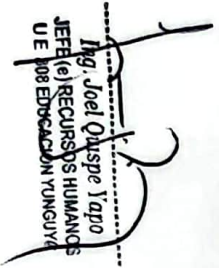 Ing. Joel Quispe Yapo
JEFE (e) RECURSOS HUMANOS
U E 308 EDUCACIÓN YUNGUYO